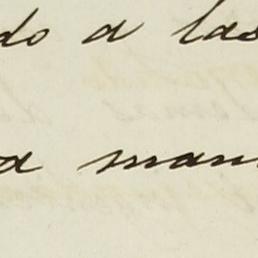 do a las
a man